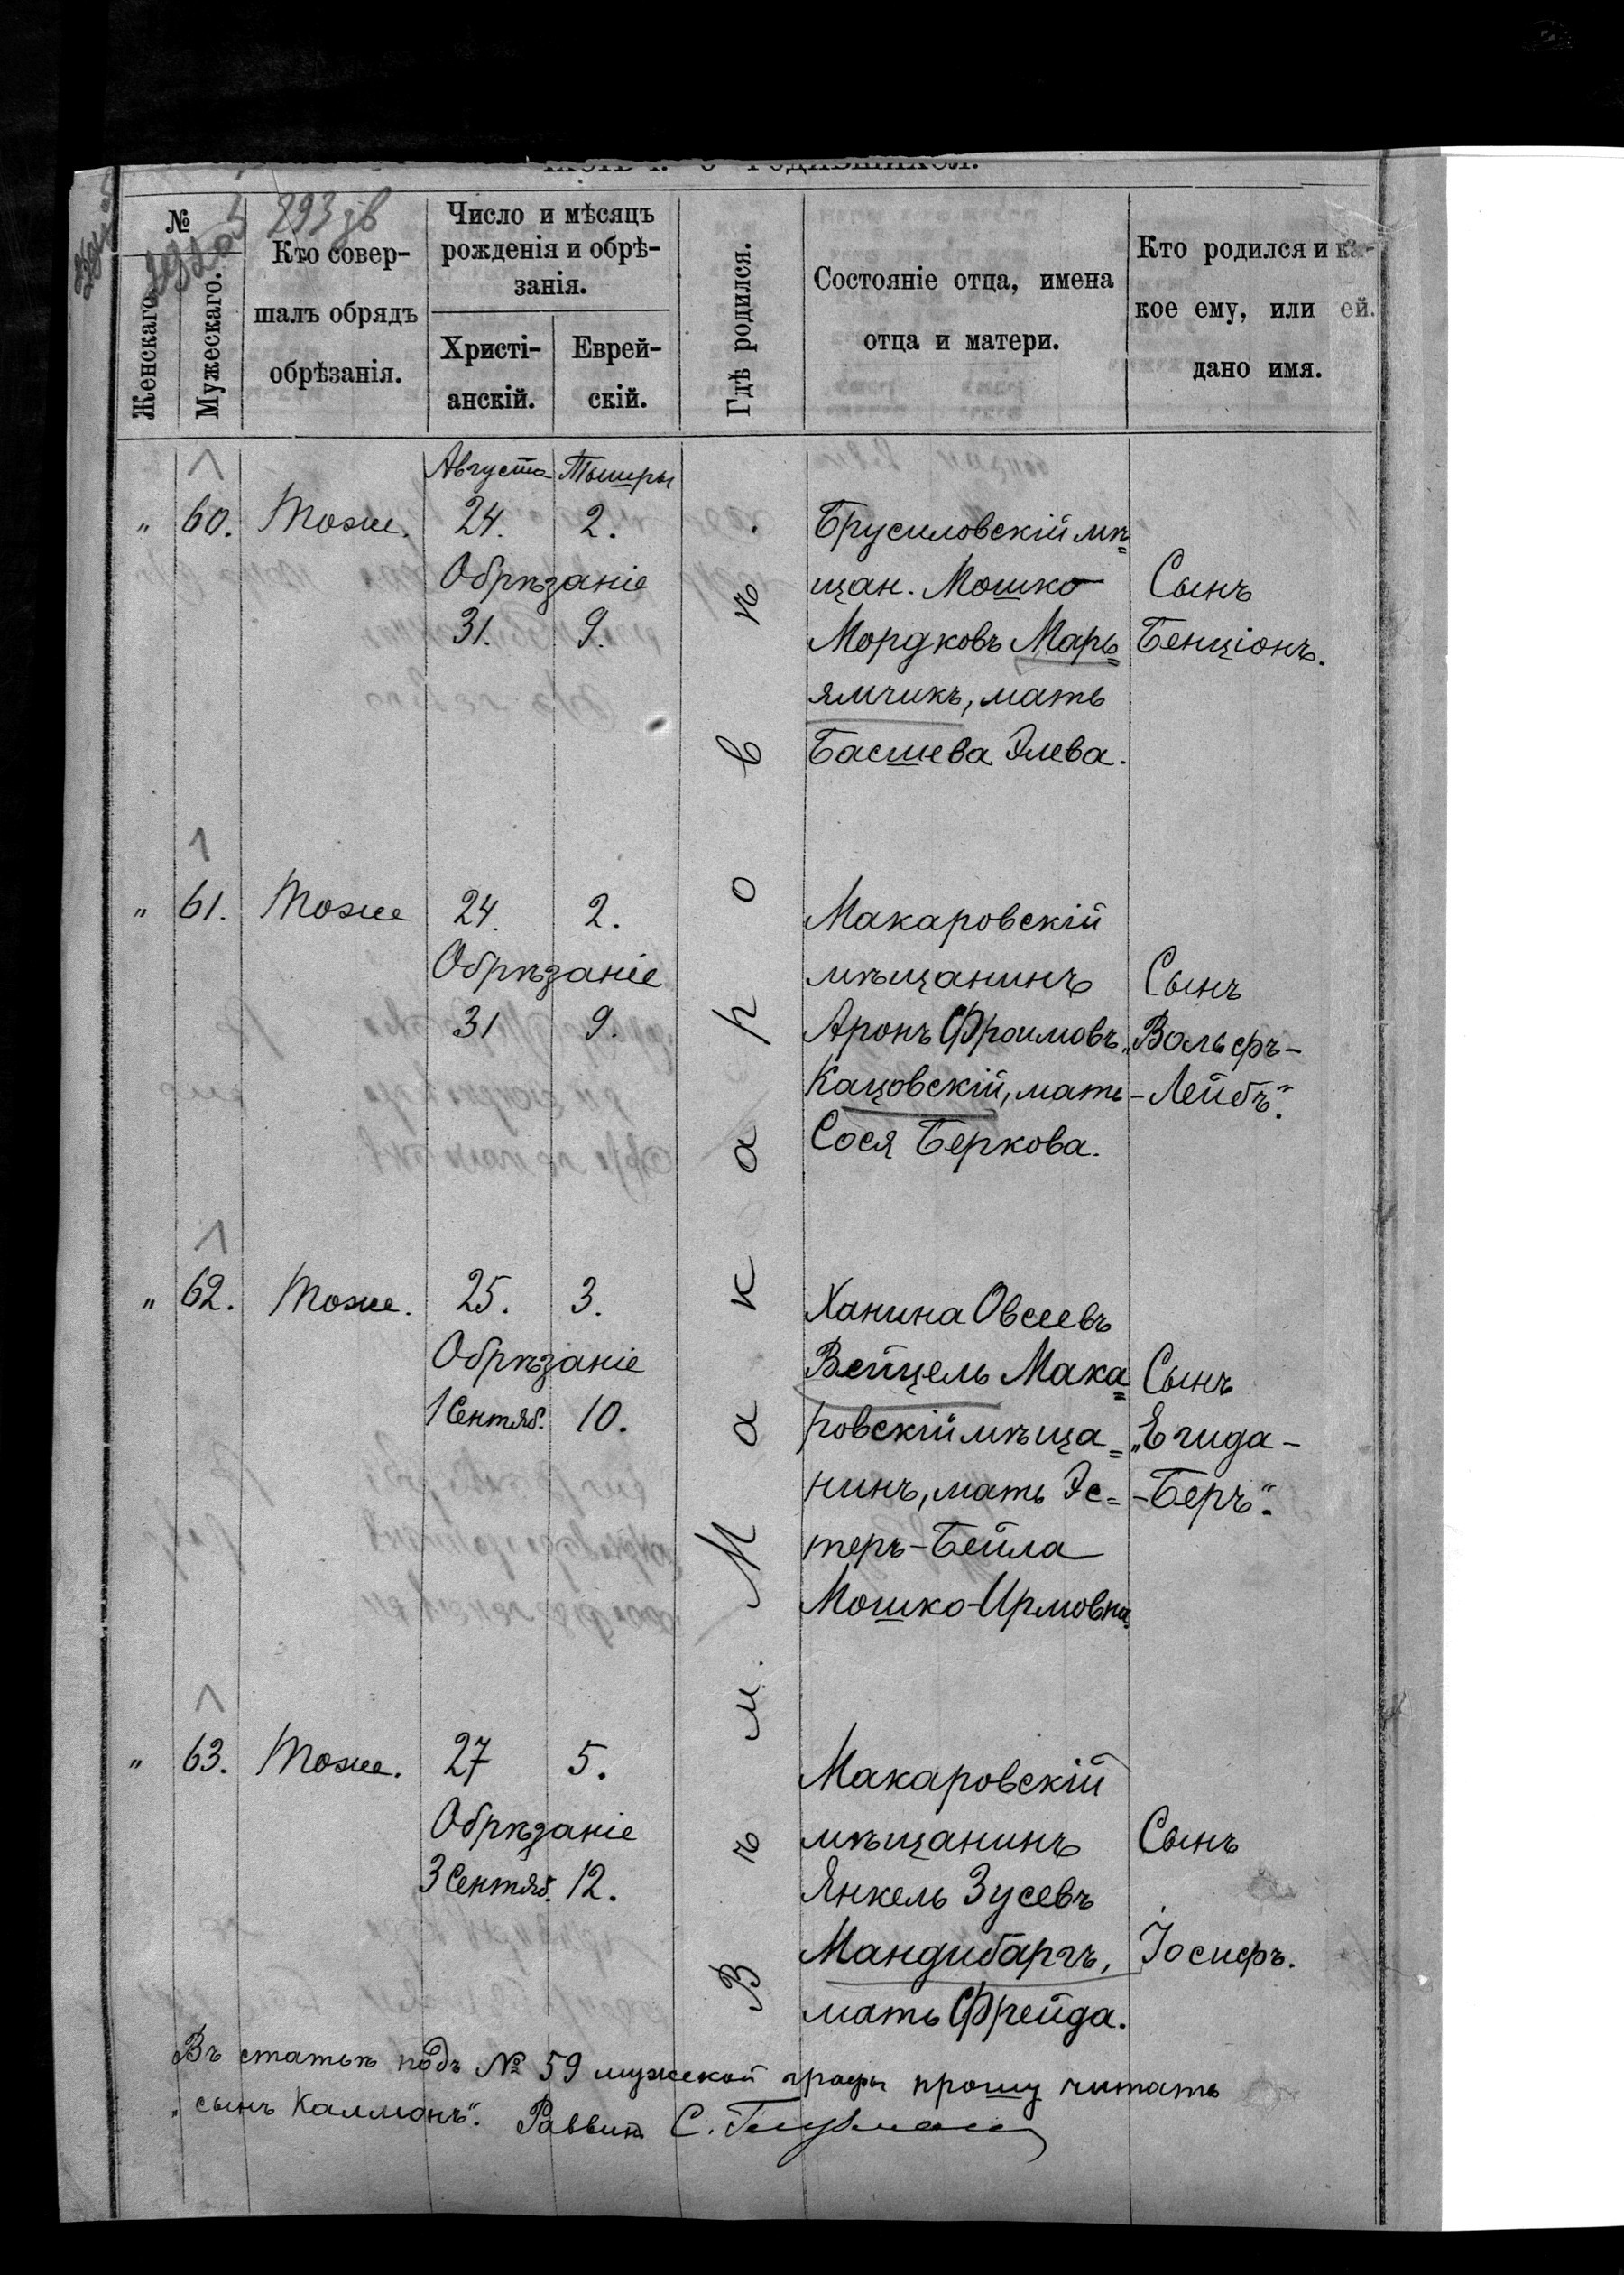 №
Женскаго.
Мужескаго.
Кто совер-
шалъ обрядъ
обрѣзанія.
Число и мѣсяцъ
рожденія и обрѣ-
занія.
Христі-
анскій.
Еврей-
скій.
Гдѣ родился.
Состояніе отца, имена
отца и матери.
Кто родился и ка-
кое ему, или ей.
дано имя.
Въ м. Макаровѣ.
Августа Тышры
" 60. Тоже. 24. 2.
Обрѣзаніе
31. 9.
Брусиловскій мѣ=
щан. Мошко
Мордковъ Марь=
ямчикъ, мать
Басшева Элева.
Сынъ
Бенціонъ.
" 61. Тоже 24. 2.
Обрѣзаніе
31 9.
Макаровскій
мѣщанинъ
Аронъ Фроимовъ
Кацовскій, мать
Сося Беркова.
Сынъ
„Вольфъ-
-Лейбъ“.
" 62. Тоже. 25. 3.
Обрѣзаніе
1 Сентяб. 10.
Ханина Овсеевъ
Вейцель Мака=
ровскій мѣща=
нинъ, мать Эс=
теръ-Бейла
Мошко-Ирмовна.
Сынъ
„Егида-
-Беръ“.
" 63. Тоже. 27 5.
Обрѣзаніе
3 Сентяб. 12.
Макаровскій
мѣщанинъ
Янкель Зусевъ
Мандибаргъ,
мать Фрейда.
Сынъ
Іосифъ.
Въ статьѣ подъ № 59 мужской графы прошу читать
„сынъ Калмонъ“. Раввин С.